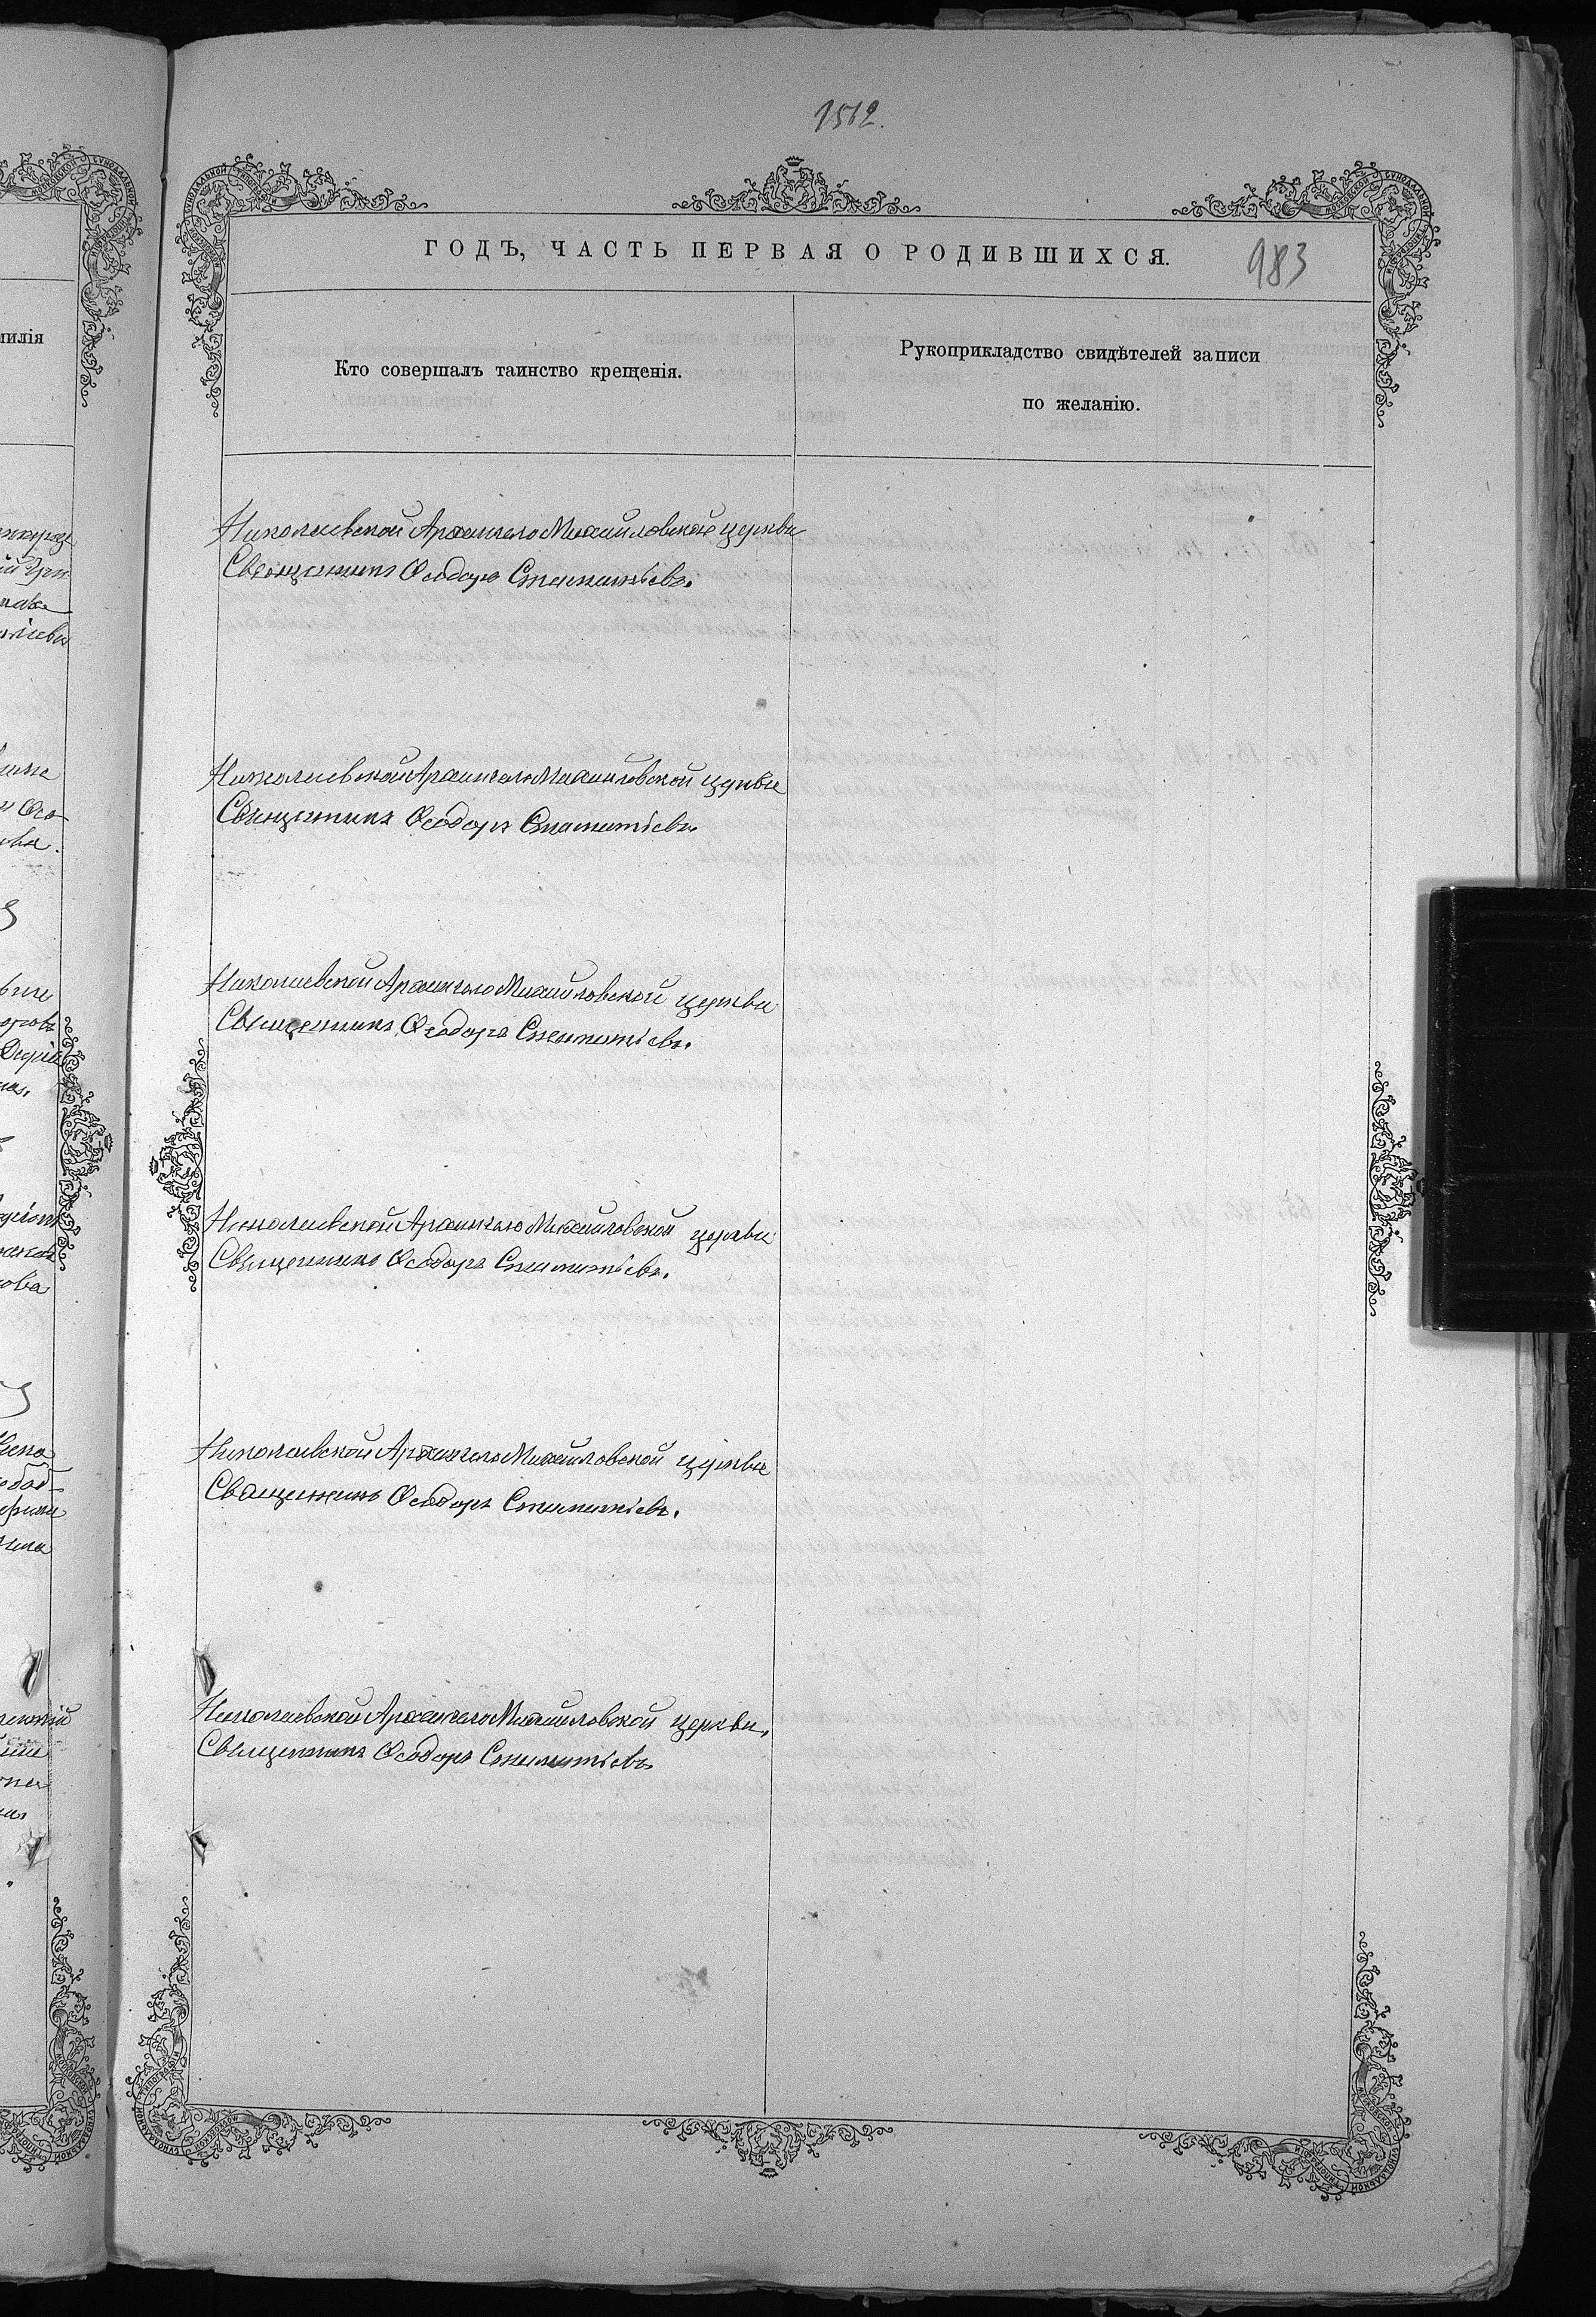 1512.
ГОДЪ, ЧАСТЬ ПЕРВАЯ О РОДИВШИХСЯ.
983
милія
Кто совершалъ таинство крещенія.
Рукоприкладство свидѣтелей записи
по желанію.
Николаевской Архангело Михайловской церкви
Священникъ Ѳеодоръ Стаматіевъ.
Николаевской Архангело Михайловской церкви
Священникъ Ѳеодоръ Стаматіевъ.
Николаевской Архангело Михайловской церкви
Священникъ Ѳеодоръ Стаматіевъ.
Николаевской Архангело Михайловской церкви
Священникъ Ѳеодоръ Стаматіевъ.
Николаевской Архангело Михайловской церкви
Священникъ Ѳеодоръ Стаматіевъ.
Николаевской Архангело Михайловской церкви,
Священникъ Ѳеодоръ Стаматіевъ.